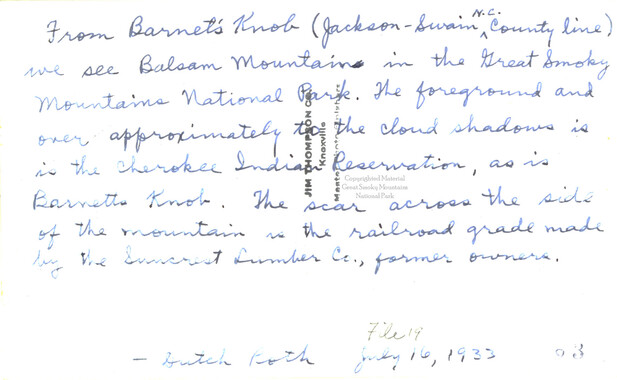 From Barnet's Knob (Jackson-Swain N.C. County line)
we see Balsam Mountains in the Great Smoky
Mountains National Park. The foreground and
over approximately to the cloud shadows is
in the Cherokee Indian Reservation, as is
Barnetts Knob. The scar across the side
of the mountain is the railroad grade made
by the Suncrest Lumber Co., former owners.
File 19
— Dutch Roth July 16, 1933 03
JIM THOMPSON CO
Knoxville
Copyrighted Material
Great Smoky Mountains
National Park